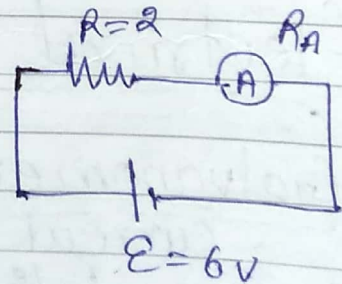 R=2
R_A
A
Ɛ=6v